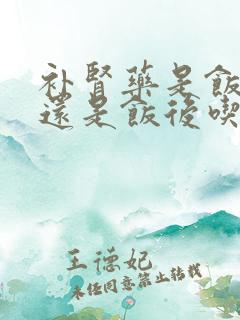 补肾藥是飯
還是飯後喫
王德妃
未经同意禁止转载